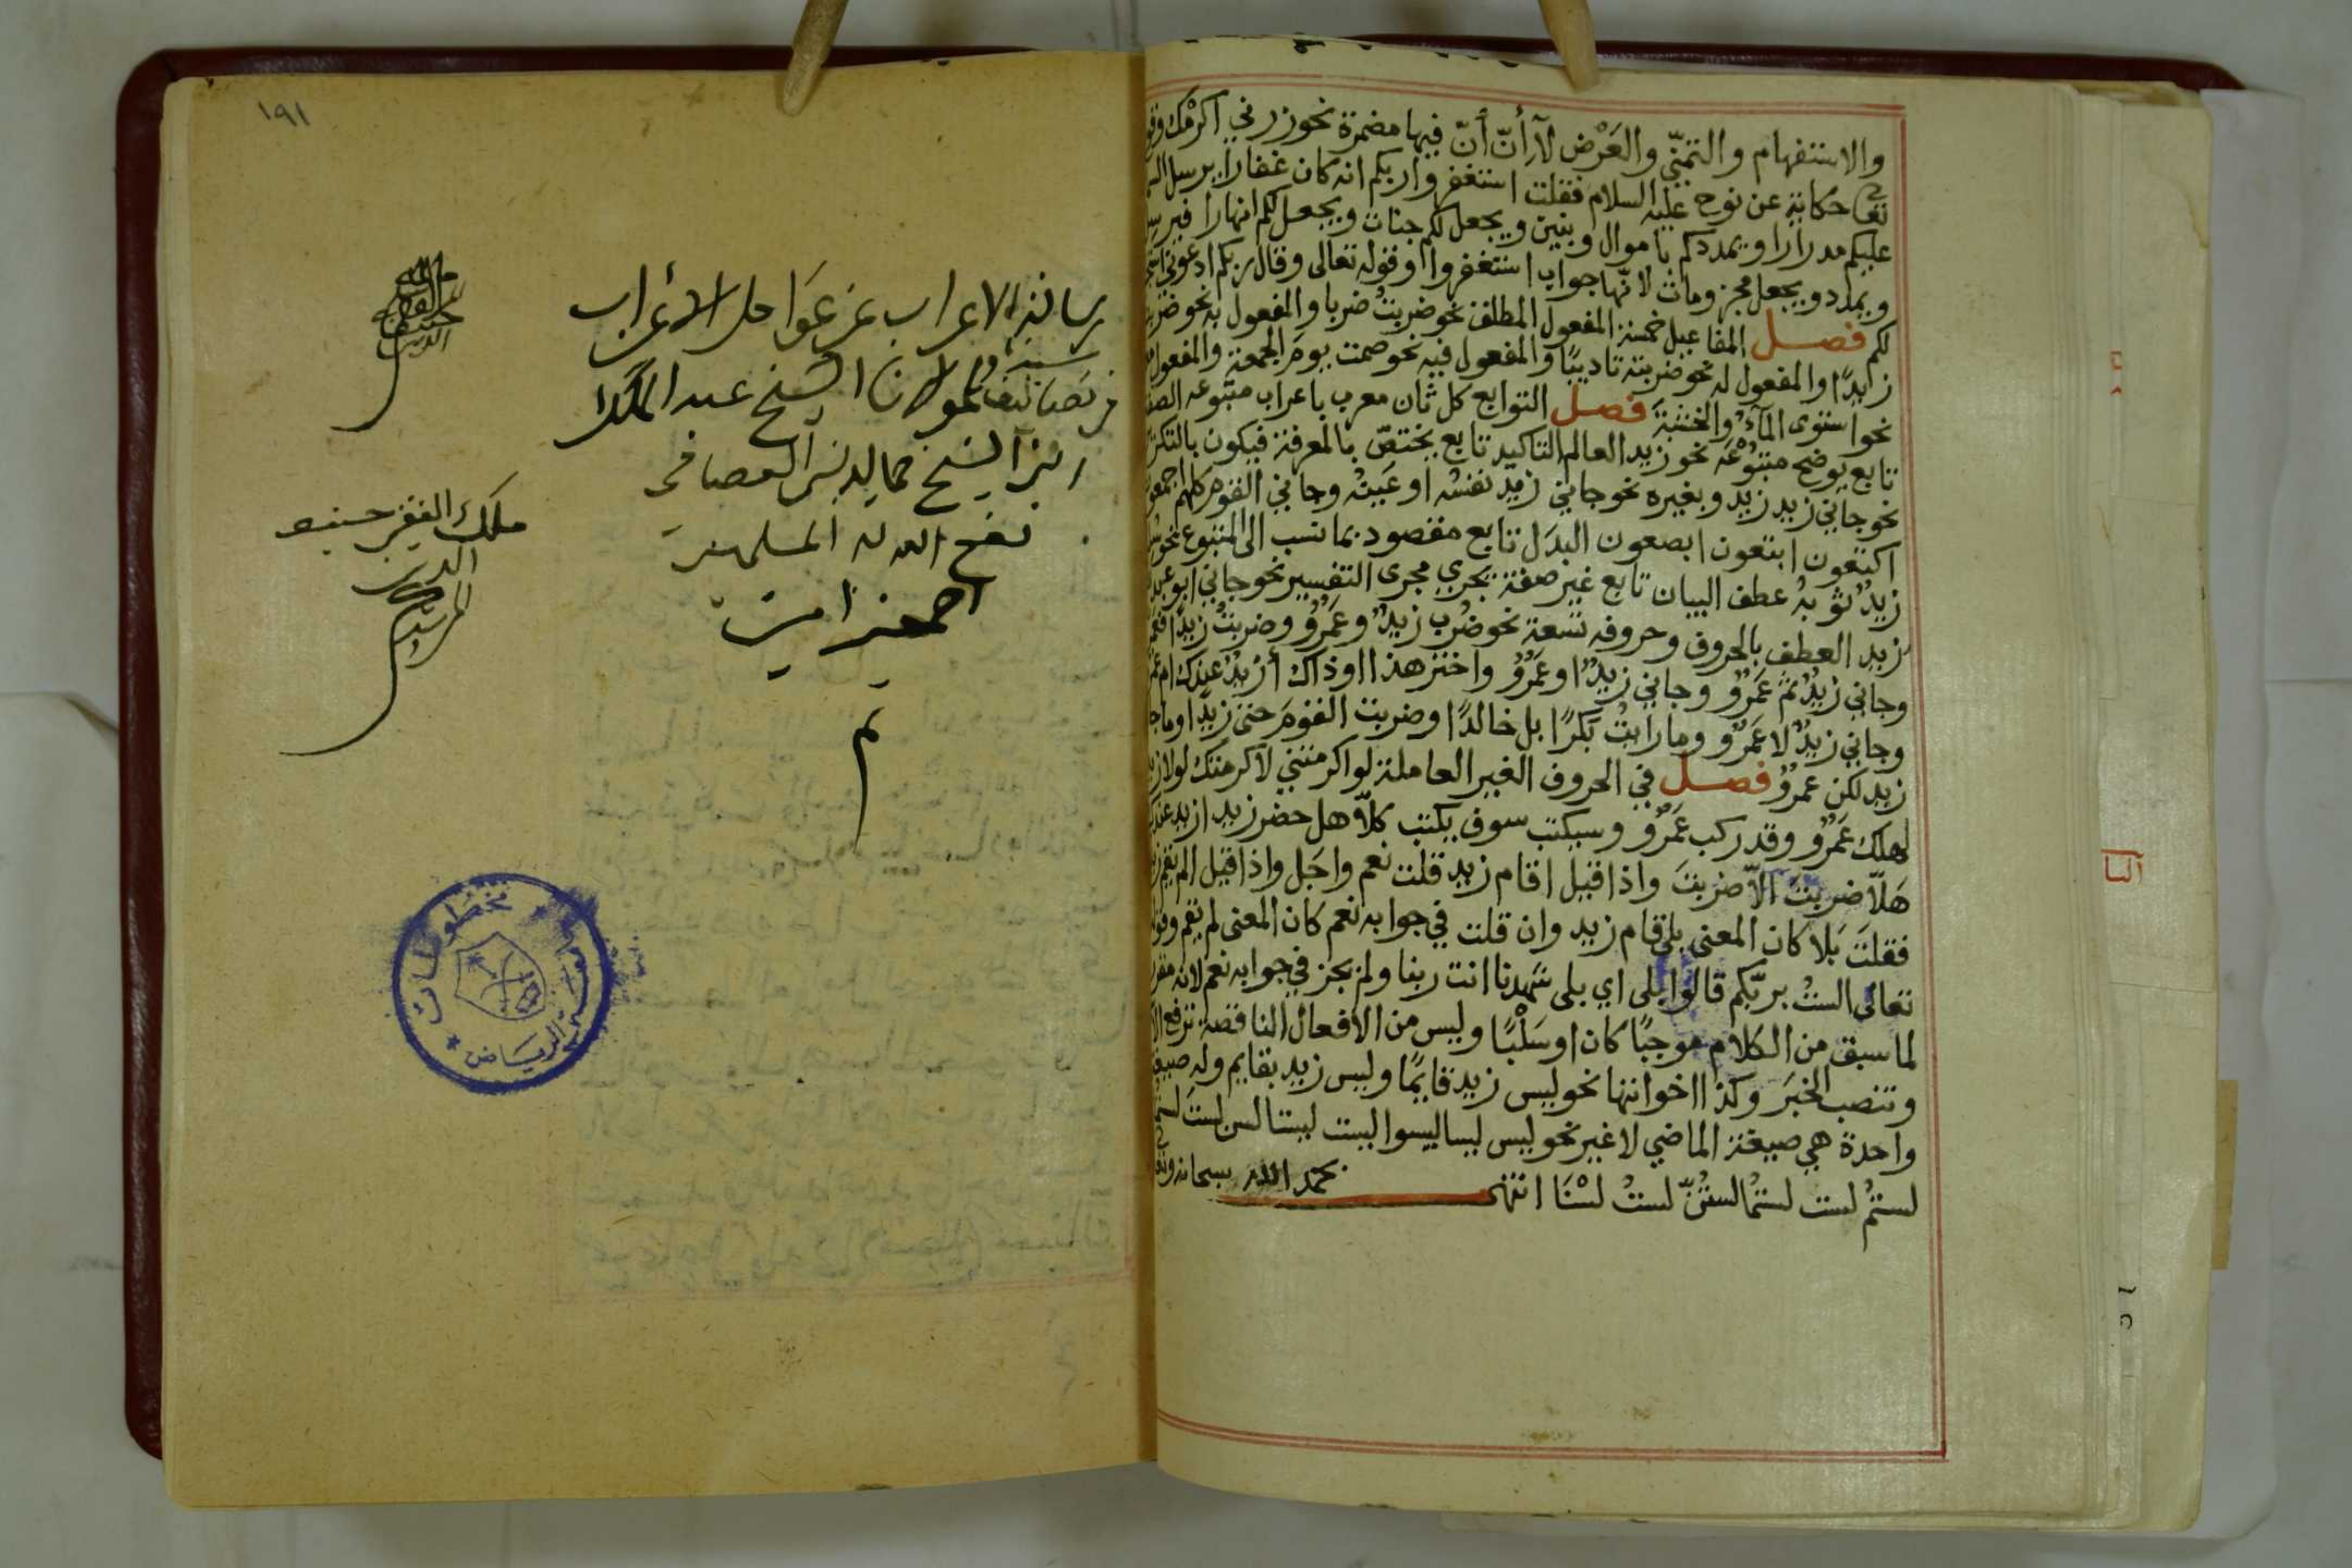 والاستفهام والتمنّي والعَرْض لآِأنّ أنّ فيها مضمرة نحو زرني اكرمْك وقو
تعا حكاية عن نوح عليه السلام فقلت استغفروا ربكم انه كان غفارا يرسل الس
عليكم مدرارا ويمددكم باموال وبنين ويجعل لكم جنات ويجعل لكم انهارا فيرس
ويمدد ويجعل مجزومات لانّها جواب استغفروا وقوله تعالى وقال ربكم ادعوني استج
لكم فصل المفاعيل خمسة المفعول المطلق نحو ضربتُ ضربا والمفعول به نحو ضرب
زيدًا والمفعول له نحو ضربته تاديبًا والمفعول فيه نحو صمت يومَ الجمعة والمفعول
نحو استوى المآءُ والخشبةَ فصل التوابع كل ثان معرب باعراب متبوعه الصف
تابع يوضح متبُوْعَه نحو زيد العالم التاكيد تابع يختصّ بالمعرفة فيكون بالتكر
نحو جاني زيد زيد وبغيره نحو جاني زيد نفسُه او عَينُه وجاني القوم كلهم اجمعو
اكتعون ابتعون ابصعون البدَل تابع مقصود بما نسب الى المتبوع نحو
زيدٌ ثوبهُ عطف البيان تابع غير صفة يجري مجرى التفسير نحو جاني ابو عبد
زيد العطف بالحروف وحروفه تسعة نحو ضُرب زيدٌ وعَمرٌو وضربتُ زيدًا
وجاني زيدٌ ثمّ عَمرٌو وجاني زيدٌ او عَمرٌو واختر هذا او ذاك أزيدٌ عندك ام عم
وجاني زيدٌ لا عَمرٌو وما رايتُ بكرًا بل خالدًا وضربت القومَ حتى زيدًا وما جا
زيد لكن عمرٌو فصل في الحروف الغير العاملة لو اكرمتني لاكرمتك لولا زي
لهلك عَمرٌو وقد ركب عَمرٌو وسيكتب سوف يكتب كلّا هل حضر زيد ازيد عندك
هَلّا ضربتَ الّا ضربتَ واذا قيل اقام زيد قلت نعم واجَل واذا قيل الم يقم ز
فقلتَ بَلا كان المعنى بلى قام زيد وان قلت في جوابه نعم كان المعنى لم يقم وقول
تعالى الستُ بربّكم قالوا بلى اي بلى شهدنا انت ربنا ولم يجز في جوابه نعم لانه مقر
لما سبق من الكلام موجبًا كان او سَلْبًا وليس من الافعال الناقصة ترفع الا
وتنصب الخبَر وكذا اخواتها نحو ليس زيد قايمًا وليس زيد بقايم وله صيغ
واحدة هي صيغة الماضي لا غير نحو ليس ليسا ليسوا ليست ليستا لسن لستَ لستم
لستمْ لست لستمُا لستُنّ لستُ لسْنَا انتهى بحمد الله سبحانه وتعا
١٩١
رسالة الاعراب عن عوامل الاعراب
من تصانيف مولانا الشيخ عبد الملك
ابن الشيخ جمال الدين العصامي
نفع الله له المسلمين
اجمعين امين
تم
ملك الفقير
الدين
مخطوطات
الرياض